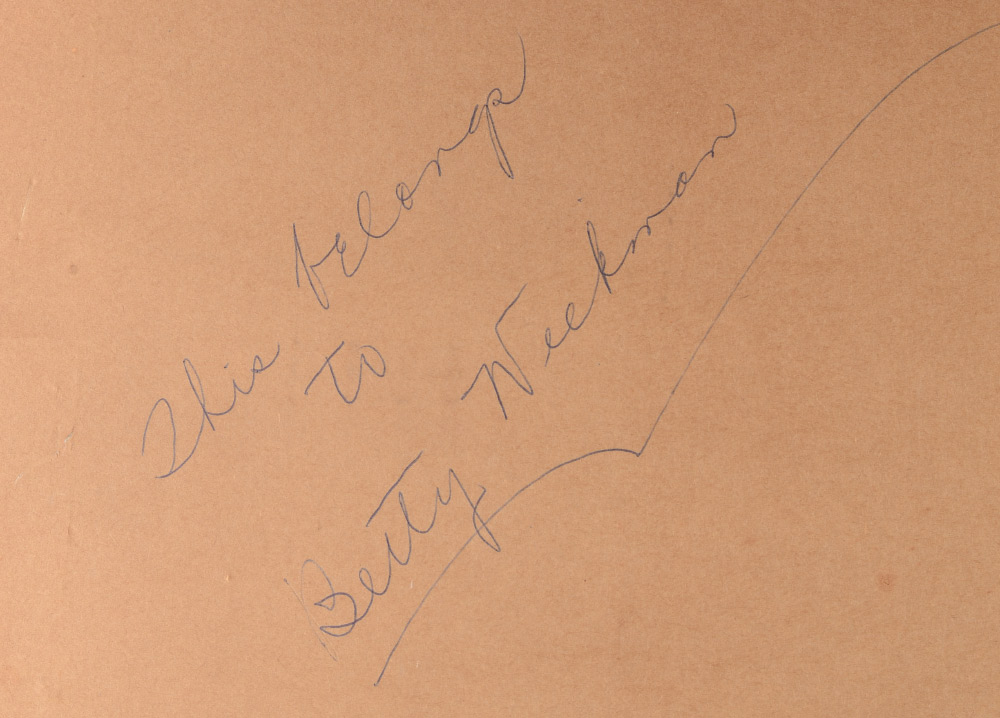 This belongs
to
Betty Weekman